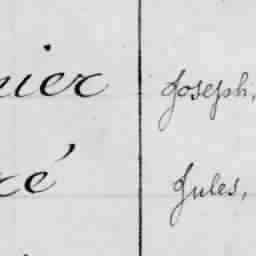 nier Joseph,
ré Jules,